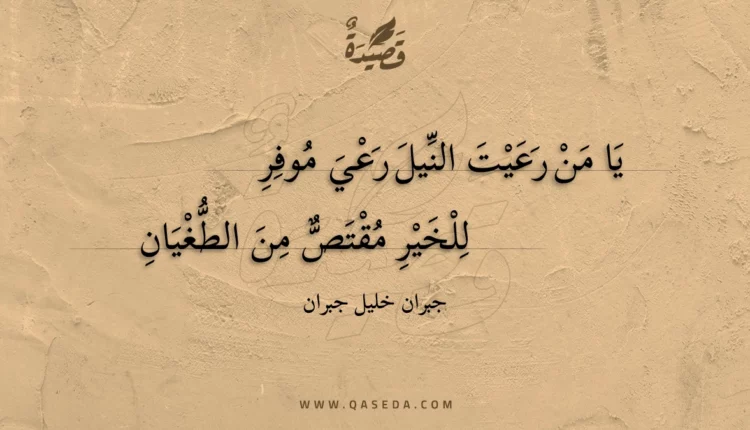 قَصِيْدَةٌ
يَا مَنْ رَعَيْتَ النِّيلَ رَعْيَ مُوفِرِ
لِلْخَيْرِ مُقْتَصٌّ مِنَ الطُّغْيَانِ
جبران خليل جبران
WWW.QASEDA.COM